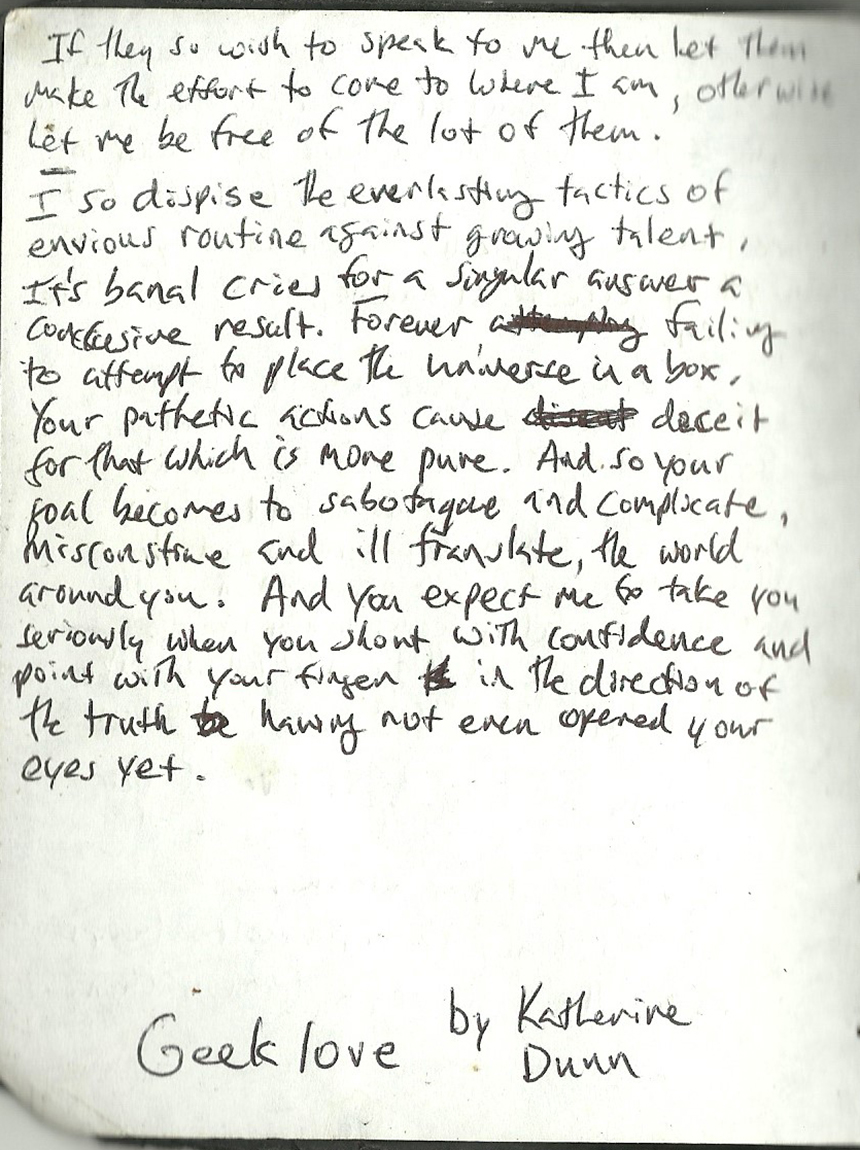 If they so wish to speak to me then let them
make the effort to come to where I am, otherwise
let me be free of the lot of them.
I so dispise the everlasting tactics of
envious routine against growing talent,
It's banal cries for a singular answer a
result. Forever failing
to attempt to place the universe in a box,
Your pathetic actions cause deceit
for that which is more pure. And so your
goal becomes to sabotague and complicate,
misconstrue and ill translate, the world
around you. And you expect me to take you
seriously when you shout with confidence and
point with your finger in the direction of
the truth having not even opened your
eyes yet.
Geek love
by Katherine
Dunn